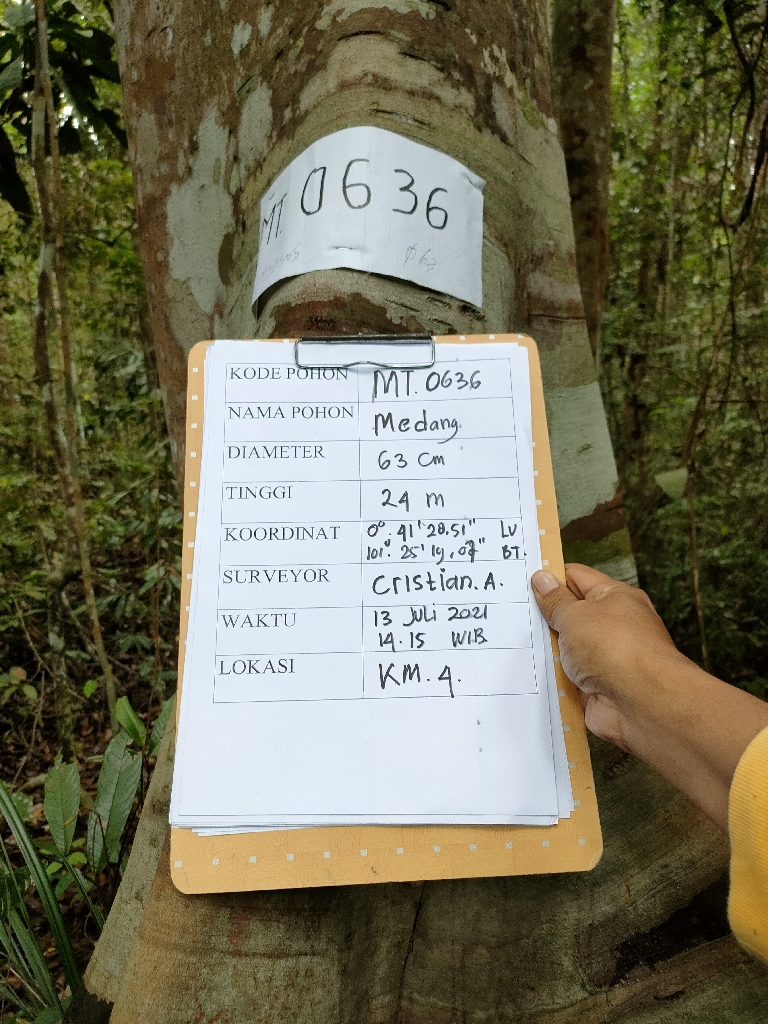 MT. 0636
KODE POHON MT. 0636
NAMA POHON Medang.
DIAMETER 63 Cm
TINGGI 24 m
KOORDINAT 0°. 41' 28.51" LV
101°. 25' 19,07" BT.
SURVEYOR Cristian. A.
WAKTU 13 Juli 2021
14.15 WIB
LOKASI KM. 4.